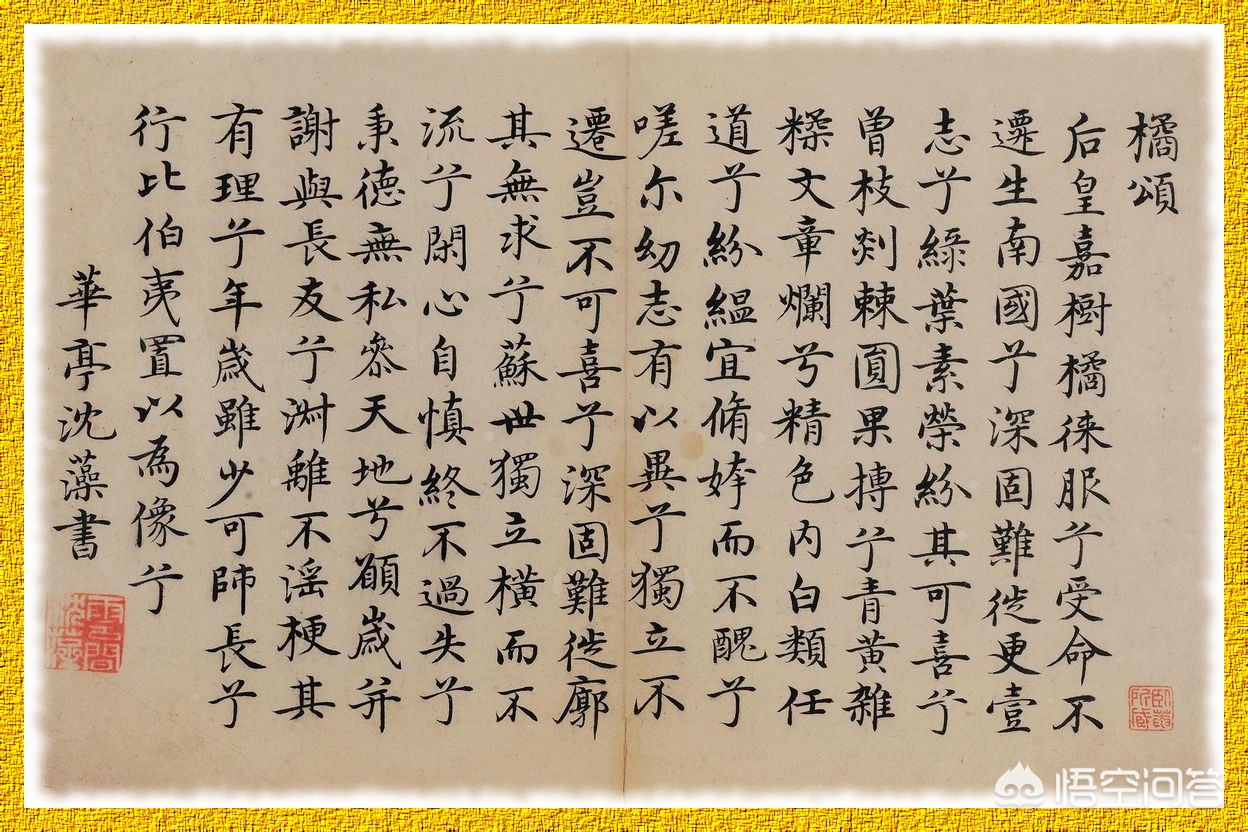 橘頌
后皇嘉樹橘徠服兮受命不
遷生南國兮深固難徙更壹
志兮綠葉素榮紛其可喜兮
曾枝剡棘圓果摶兮青黃雜
糅文章爛兮精色內白類任
道兮紛縕宜脩姱而不醜兮
嗟尔幼志有以異兮獨立不
遷豈不可喜兮深固難徙廓
其無求兮蘇世獨立橫而不
流兮閑心自慎終不過失兮
秉德無私參天地兮願歲并
謝與長友兮淑離不淫梗其
有理兮年歲雖少可師長兮
行比伯夷置以為像兮
華亭沈藻書
悟空问答